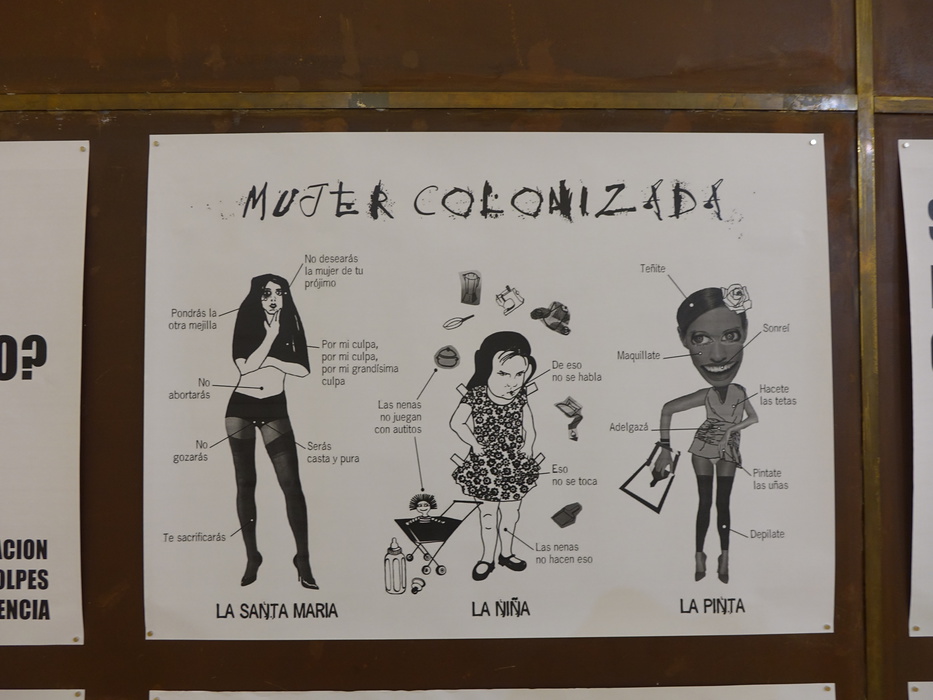 MUJER COLONIZADA
No desearás
la mujer de tu
prójimo
Pondrás la
otra mejilla
Por mi culpa,
por mi culpa,
por mi grandísima
culpa
No
abortarás
No
gozarás
Serás
casta y pura
Te sacrificarás
LA SANTA MARIA
De eso
no se habla
Las nenas
no juegan
con autitos
Eso
no se toca
Las nenas
no hacen eso
LA NIÑA
Teñite
Sonreí
Maquillate
Hacete
las tetas
Adelgazá
Pintate
las uñas
Depilate
LA PINTA
O?
ACION
OLPES
ENCIA